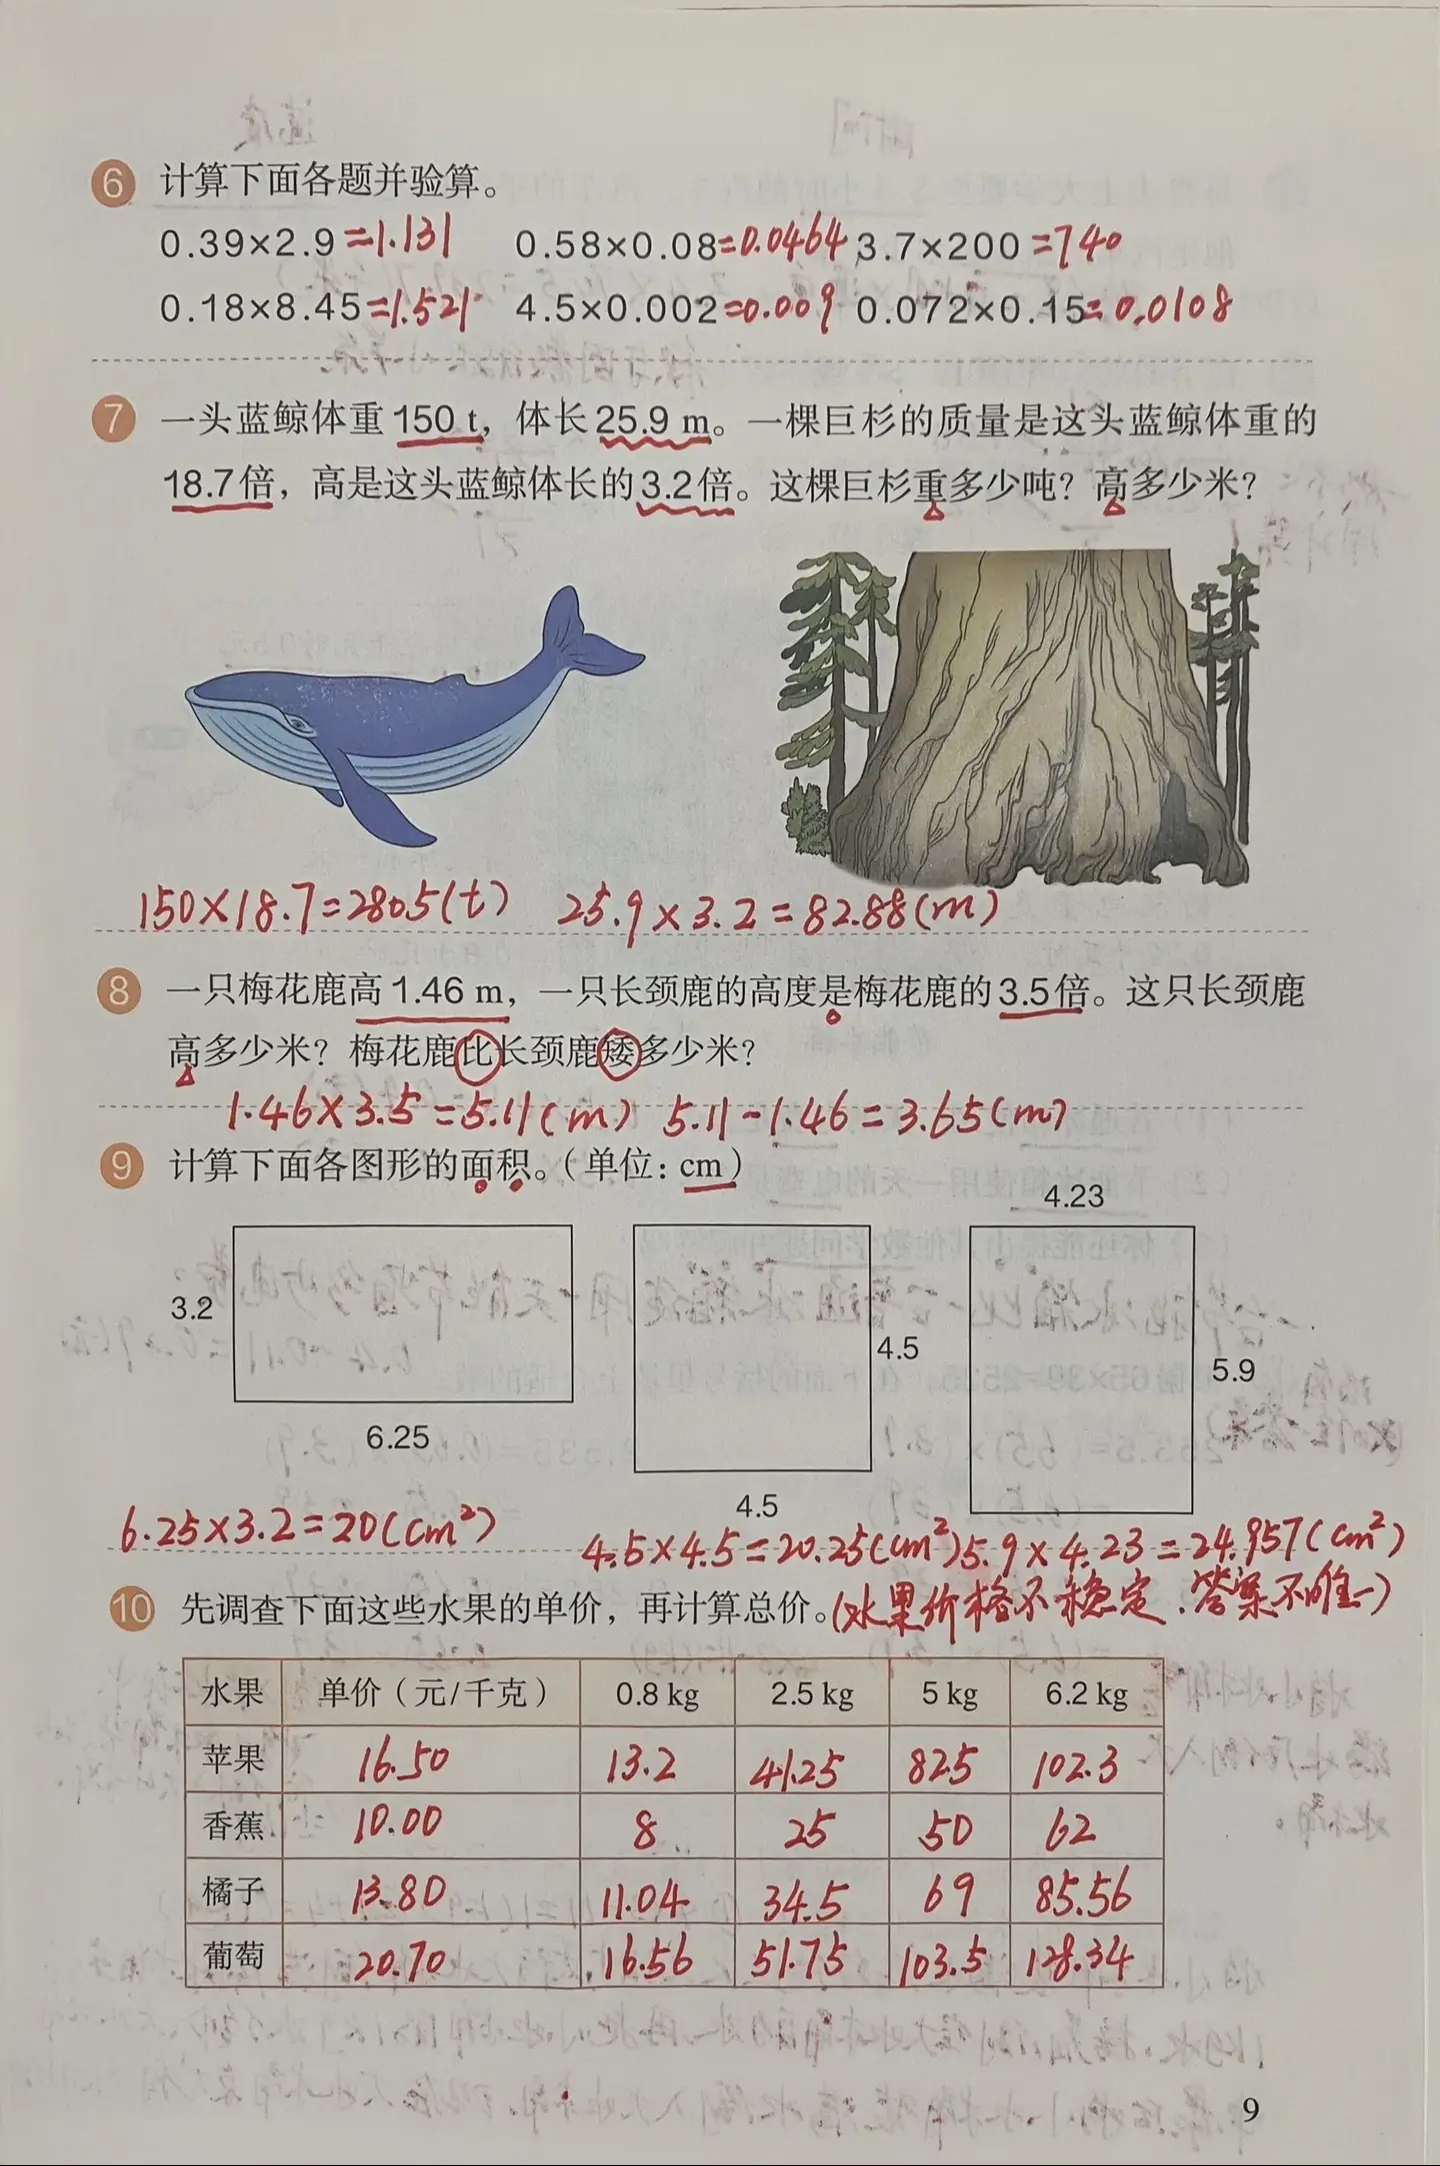 6 计算下面各题并验算。
0.39×2.9=1.131 0.58×0.08=0.0464 3.7×200=740
0.18×8.45=1.521 4.5×0.002=0.009 0.072×0.15=0.0108
7 一头蓝鲸体重150 t，体长25.9 m。一棵巨杉的质量是这头蓝鲸体重的
18.7倍，高是这头蓝鲸体长的3.2倍。这棵巨杉重多少吨？高多少米？
150×18.7=2805(t) 25.9×3.2=82.88(m)
8 一只梅花鹿高1.46 m，一只长颈鹿的高度是梅花鹿的3.5倍。这只长颈鹿
高多少米？梅花鹿比长颈鹿矮多少米？
1.46×3.5=5.11(m) 5.11-1.46=3.65(m)
9 计算下面各图形的面积。（单位：cm）
4.23
3.2
4.5
5.9
6.25
4.5
6.25×3.2=20(cm²) 4.5×4.5=20.25(cm²) 5.9×4.23=24.957(cm²)
10 先调查下面这些水果的单价，再计算总价。(水果价格不稳定，答案不唯一)
水果 单价（元/千克） 0.8 kg 2.5 kg 5 kg 6.2 kg
苹果 16.50 13.2 41.25 82.5 102.3
香蕉 10.00 8 25 50 62
橘子 13.80 11.04 34.5 69 85.56
葡萄 20.70 16.56 51.75 103.5 128.34
9